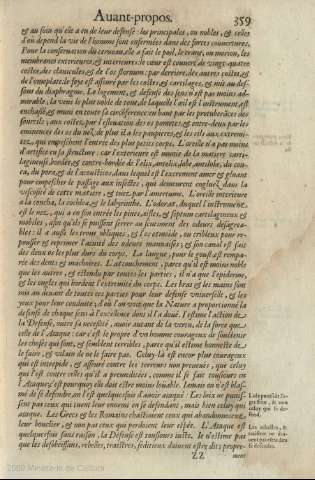 Auant-propos. 359
& au soin qu'elle a en de leur defense : les principales, ou nobles, & celles
d'où depend la vie de l'homme sont enfermées dans des fortes couuertures.
Pour la conseruation du cerueau, elle a fait le poil, le crane, ou meninx, les
membranes exterieures, & interieures: le cœur est couuert de vingt-quatre
costes, des clauicules, & de l'os sternum: par derriere, des autres costes, &
de l'omoplate: le foye est asseuré par les costes, & cartilages, & mis au des-
sous du diaphragme. Le logement, & defense des sens n'est pas moins ad-
mirable, la veue le plus noble de tous, de laquelle l'œil est l'instrument, est
enchassé, & muni en toute sa circonference en haut par les
sourcils; aux costez, par l'eleuation des os & entre-deux par les
eminences des os du nez, de plus il a les paupieres, & les cils aux extremi-
tez, qui empeschent l'entrée des plus petits corps. L'oreille n'a pas moins
d'artifice en sa structure: car l'exterieure est munie de la matiere carti-
lagineuse, bordée, & contre-bordée de l'elix, antelix, lobe, antilobe, du con-
ca, du pora, & de l'auuiditios dans lequel est l'excrement amer & gluant
pour empescher le passage aux insectes, qui demeurent engluez dans la
viscosité de cette matiere, & tuez par l'amertume. L'oreille interieure
a la concha, la coclea, & le labyrinthe. L'odorat, duquel l'instrument
est le nez, qui a en son entrée les pines, aisles, & septum cartilagineux &
mobiles, afin qu'ils se puissent serrer au sentiment des odeurs desagrea-
bles: il a aussi les trous obliques, & l'os etmoide, ou cribleux pour re-
pousser & reprimer l'acuité des odeurs mauuaises, & son canal est fait
des deux os les plus durs du corps. La langue, pour le goust est rempa-
rée des dents & machoires. L'attouchement, parce qu'il est moins noble
que les autres, & estendu par toutes les parties, il n'a que l'epiderme,
& les ongles qui bordent l'extremité du corps. Les bras & les mains sont
mis au deuant de toutes ces parties pour leur defense vniuerselle, & les
yeux pour leur conduite, d'où l'on voit que la Nature a proportionné la
defense de chaque sens à l'excellence dont il l'a doué. I'estime l'action de
la Defense, outre sa necessité, autant autant de la vertu, de la force que
celle de l'Attaque: car c'est le propre d'vn homme courageux de soustenir
les choses qui sont, & semblent terribles, parce qu'il estime honneste de
le faire, & vilain de ne le faire pas. Celuy-là est encor plus courageux
qui est intrepide, & asseuré contre les terreurs non preueues, que celuy
qui l'est contre celles qu'il a premeditées, comme il se fait tousiours en
l'Attaque; c'est pourquoy elle doit estre moins louable. Iamais on n'est blas-
mé de se defendre, on l'est quelquesfois d'auoir attaqué: Les loix ne punis-
sent pas ceux qui tuent leur ennemi en se defendant, mais bien celuy qui
attaque. Les Grecs & les Romains chastioient ceux qui abandonnoient
leur bouclier, & non pas ceux qui perdoient leur espée. L'Attaque est
quelquesfois sans raison, la Defense est tousiours iuste. Ie n'estime pas
que les desobeissans, rebelles, traitres, sedicieux doiuent estre dits propre-
Z z
ment
2009 Ministerio de Cultura